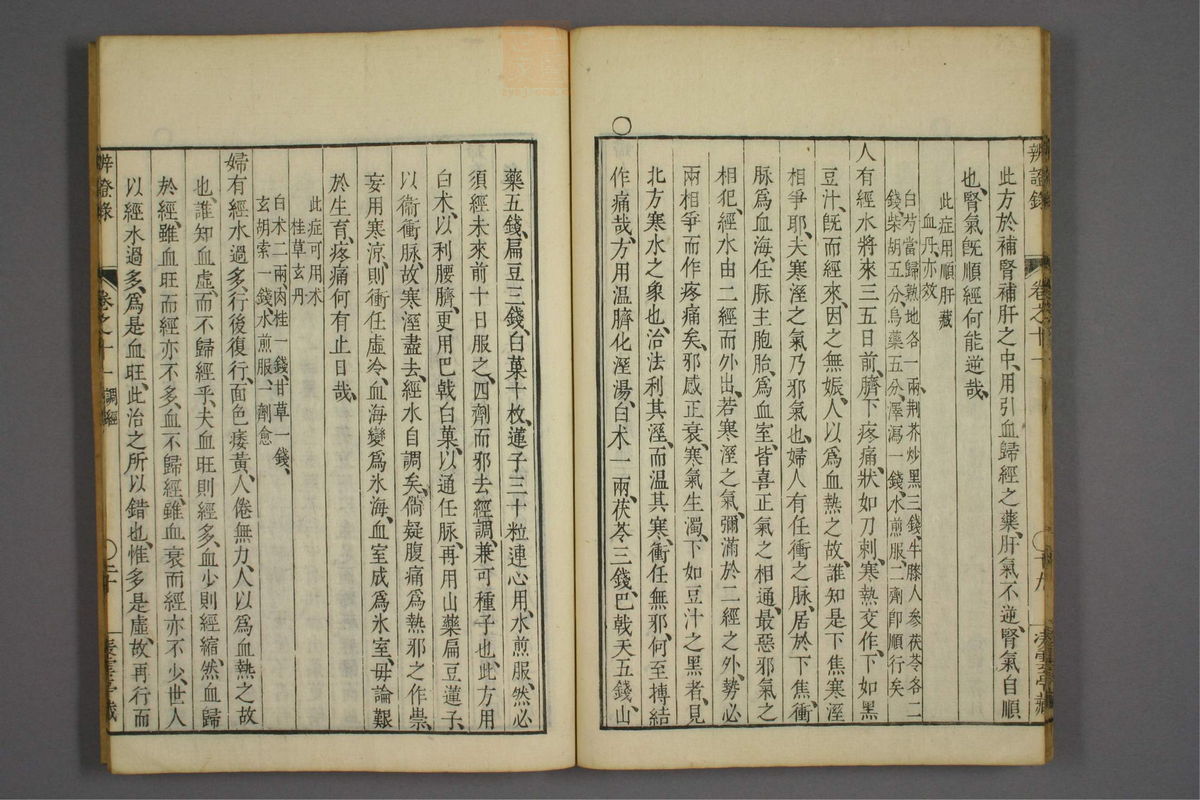 辨證錄 卷之十一 十九
此方於補腎補肝之中、用引血歸經之藥、肝氣不逆、腎氣自順
也、腎氣旣順、經何能逆哉、
此症用順肝益
血丹、亦效
白芍當歸熟地各一兩荆芥炒黑三錢、牛膝人參茯苓各二
錢、柴胡五分、烏藥五分、澤瀉一錢、水煎服、二劑卽順行矣、
人有經水將來三五日前、臍下疼痛、狀如刀刺、寒熱交作、下如黑
豆汁、旣而經來、因之無娠、人以爲血熱之故、誰知是下焦寒溼
相爭耶、夫寒溼之氣、乃邪氣也、婦人有任衝之脉、居於下焦、衝
脉爲血海、任脉主胞胎、爲血室、皆喜正氣之相通、最惡邪氣之
相犯、經水由二經而外出、若寒溼之氣、彌滿於二經之外、勢必
兩相爭而作疼痛矣、邪感正衰、寒氣生濁、下如豆汁之黑者、見
北方寒水之象也、治法利其溼、而温其寒、衝任無邪、何至搏結
作痛哉、方用温臍化溼湯、白术一兩、茯苓三錢、巴戟天五錢、山
藥五錢、扁豆三錢、白菓十枚、蓮子三十粒連心用、水煎服、然必
須經未來前十日服之、四劑而邪去經調、兼可種子也、此方用
白术、以利腰臍、更用巴戟白菓、以通任脉、再用山藥扁豆蓮子、
以衞衝脉、故寒溼盡去、經水自調矣、倘疑腹痛爲熱邪之作祟、
妄用寒凉、則衝任虛冷、血海變爲氷海、血室成爲氷室、毋論艱
於生育、疼痛何有止日哉、
此症可用术
桂草玄丹
白术二兩、肉桂一錢、甘草一錢、
玄胡索一錢、水煎服、一劑愈
婦有經水過多、行後復行、面色痿黃、人倦無力、人以爲血熱之故
也、誰知血虛、而不歸經乎、夫血旺則經多、血少則經縮、然血歸
於經、雖血旺而經亦不多、血不歸經、雖血衰而經亦不少、世人
以經水過多、爲是血旺、此治之所以錯也、惟多是虛、故再行而
辨證錄 卷之十一 調經 二十